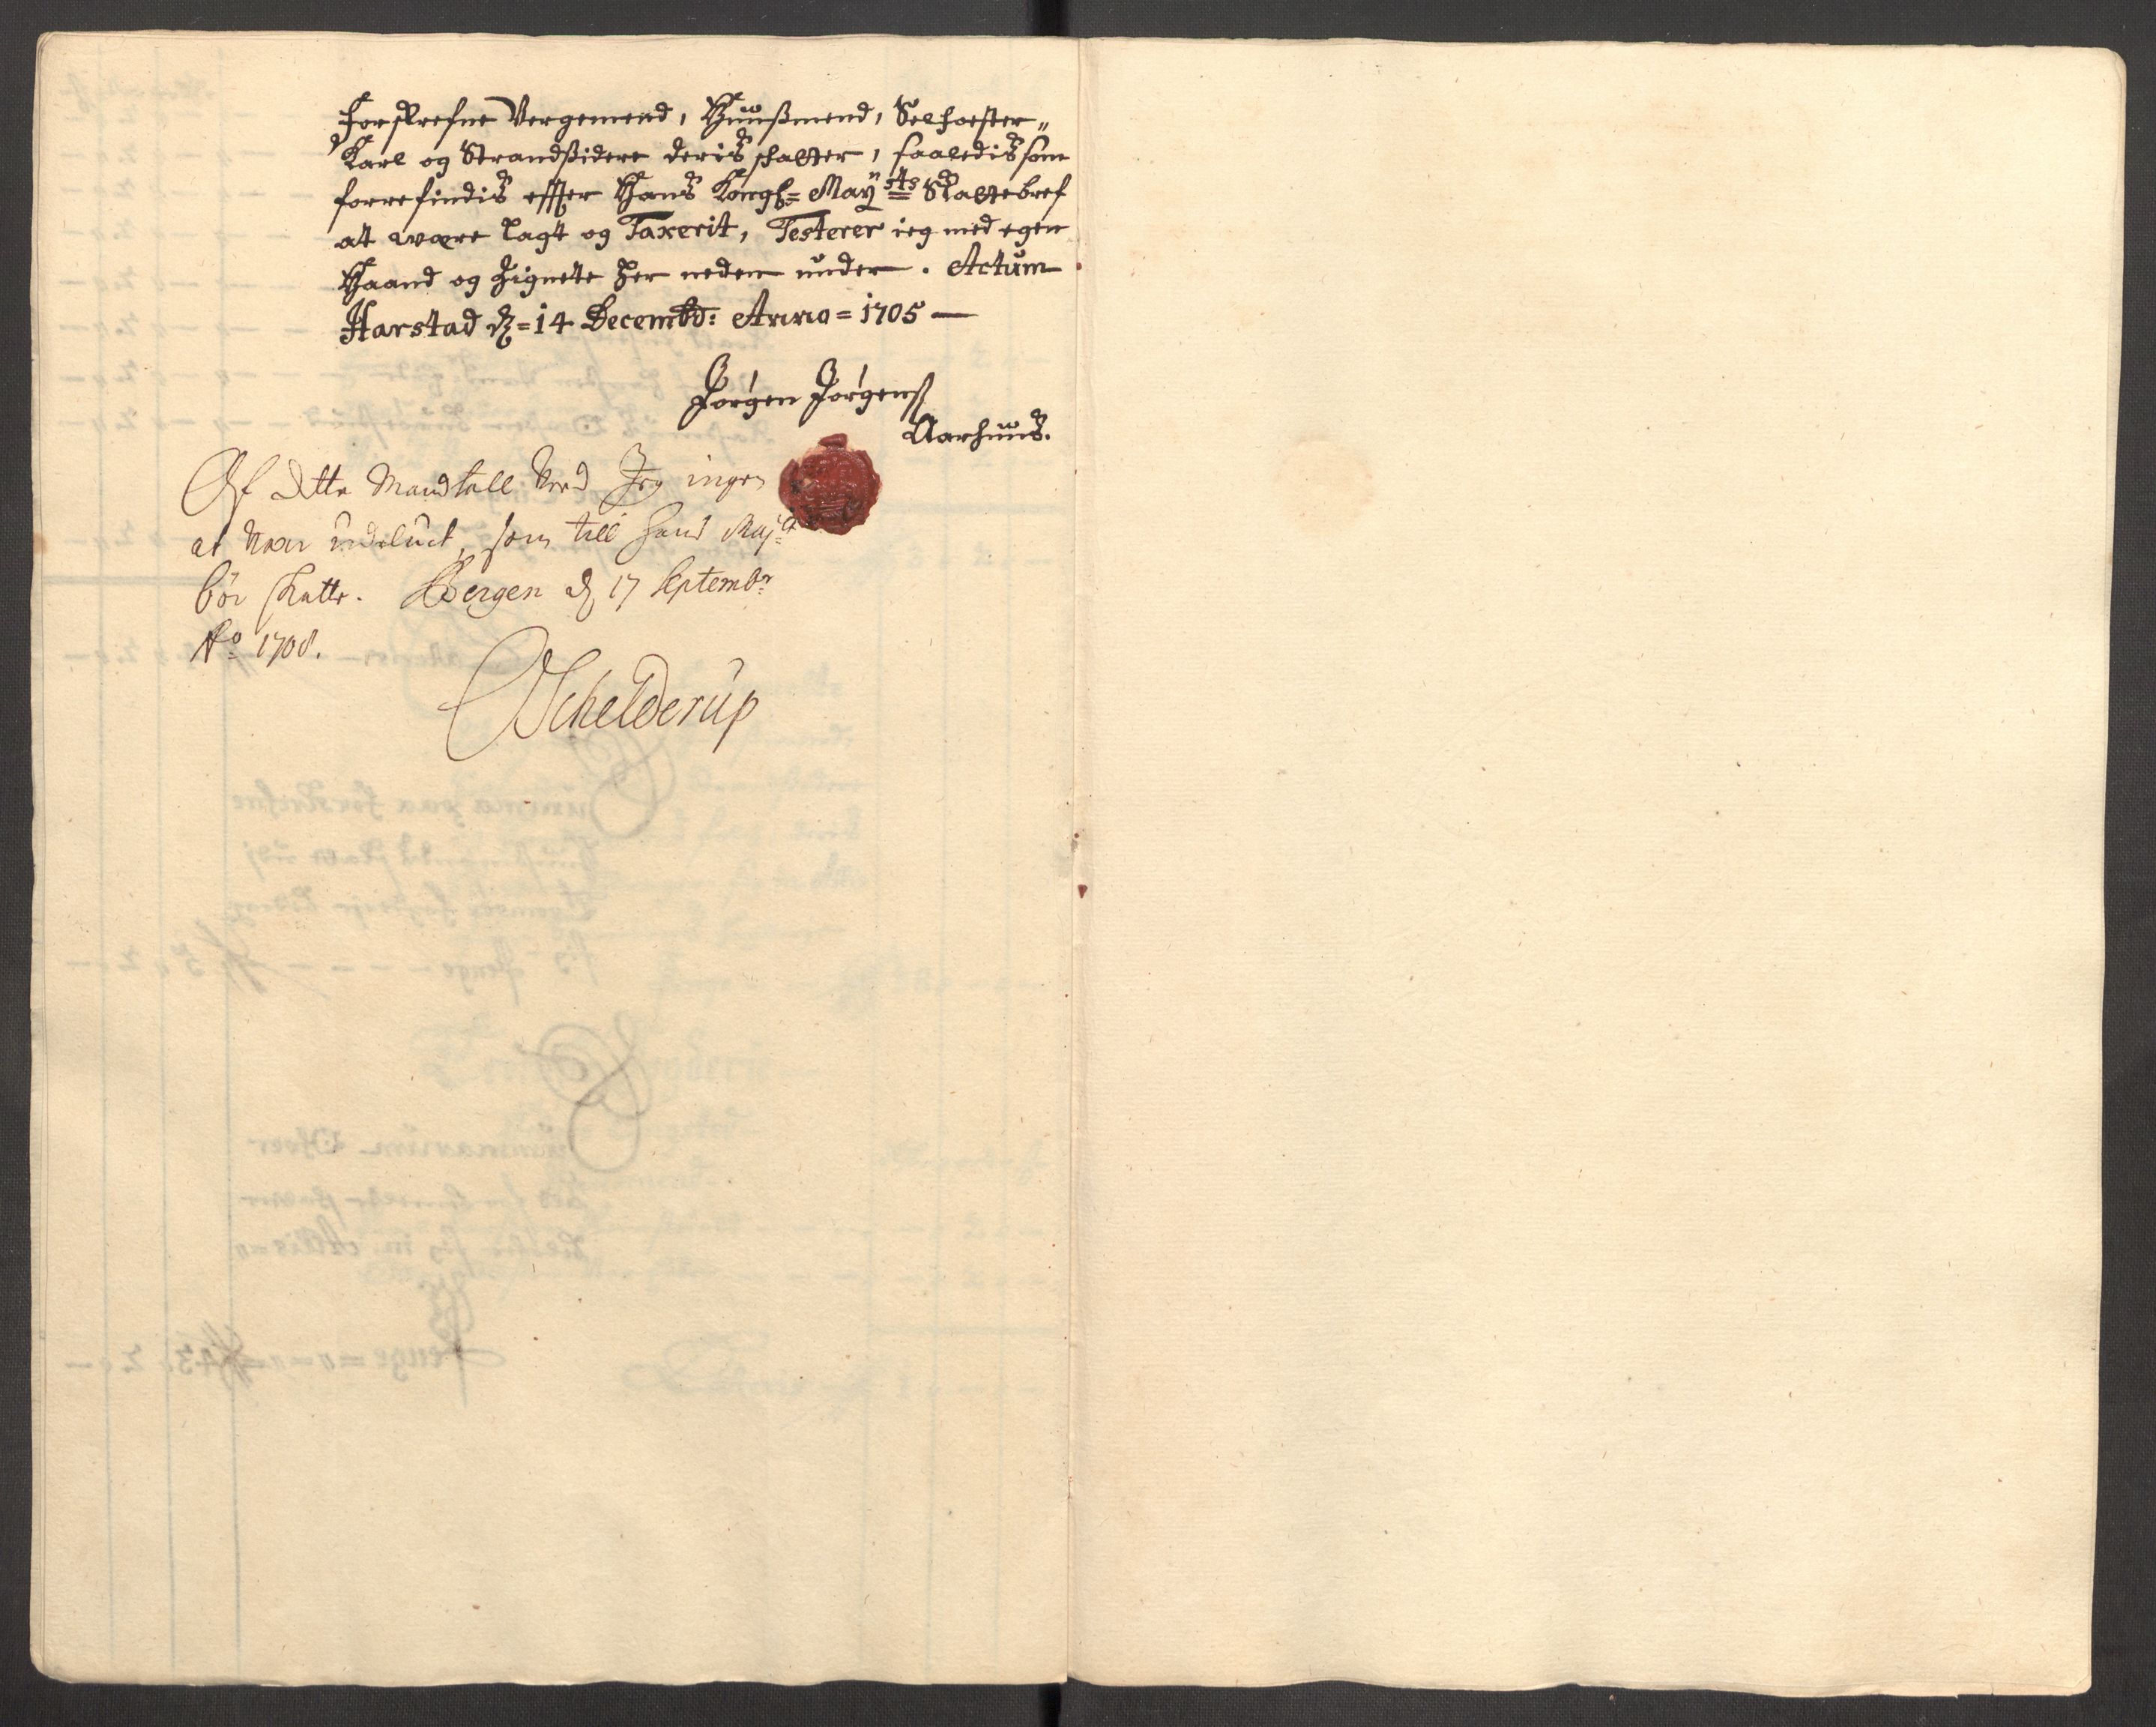 Forskrefne Vergemend, Huußmend, Selfoster„
Karl og Strandsidere deris skatter, saaledis som
forrefindis effter Hans Kongl= Maysts Skattebref
at være lagt og Taxerit, Testerer ieg med egen
Haand og Zignete her neden under. Actum
Harstad d=14 Decembd: Anno=1705—
Jørgen Jørgenß
Aarhuus.
Af dette Mandtall veed Jeg ingen
at vær udeluct, som till hans Majt
bör skatte. Bergen d 17 Septembr
Ao 1708.
Schelderup